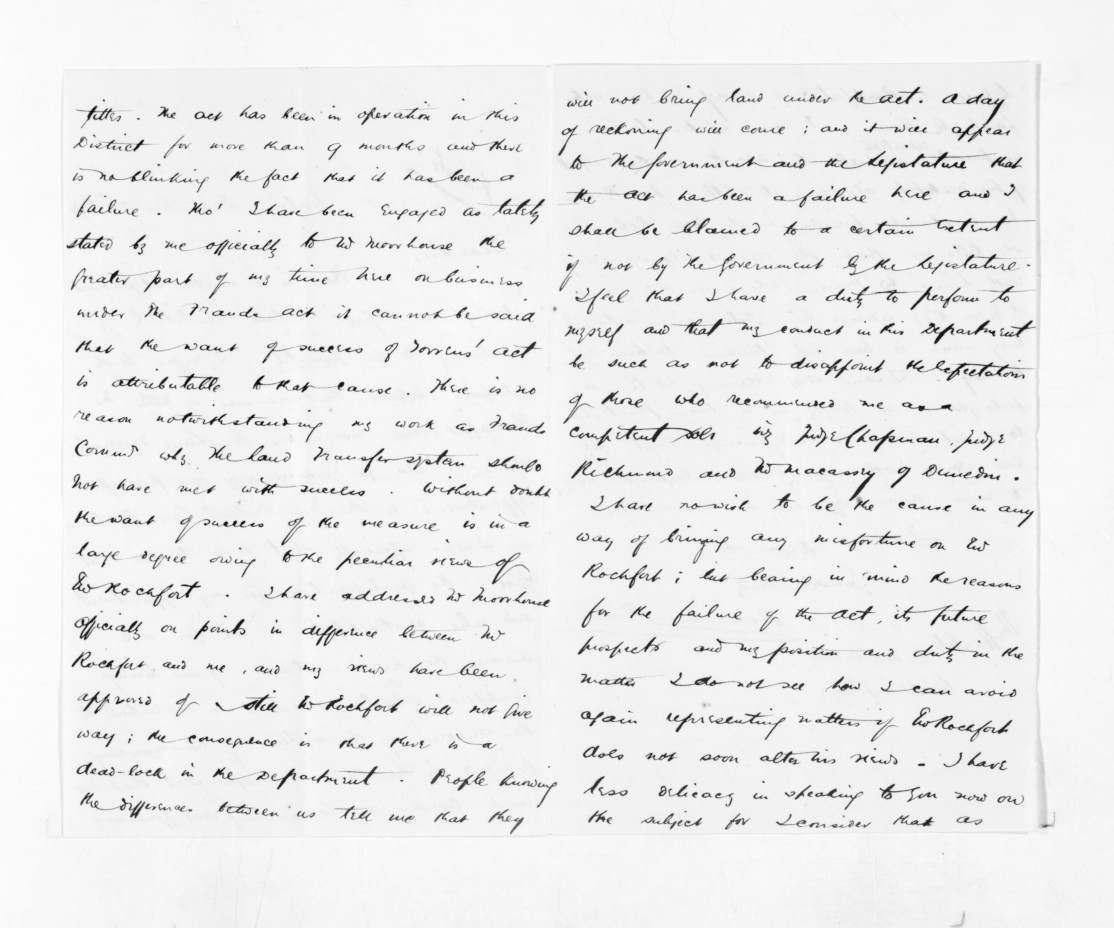 titles. The act has been in operation in this
District for more than 9 months and there
is no blinking the fact that it has been a
failure. Tho' I have been engaged as lately
stated by me officially to Mr Moorhouse the
greater part of my time here on business
under the Frauds act it cannot be said
that the want of success of Torrens' act
is attributable to that cause. There is no
reason notwithstanding my work as Frauds
Commr why the land Transfer system should
not have met with success. Without doubt
the want of success of the measure is in a
large degree owing to the peculiar views of
Mr Rochfort. I have addressed Mr Moorhouse
officially on points in difference between Mr
Rochfort and me, and my views have been
approved of still Mr Rochfort will not give
way; the consequence is that there is a
dead-lock in the Department. People knowing
the differences between us tell me that they
will not bring land under the act. A day
of reckoning will come; and it will appear
to the Government and the Legislature that
the act has been a failure here and I
shall be blamed to a certain extent
if not by the Government by the Legislature.
I feel that I have a duty to perform to
myself and that my conduct in this Department
be such as not to disappoint the expectations
of those who recommended me as a
competent by Judge Chapman, Judge
Richmond and Mr Macassey of Dunedin.
I have no wish to be the cause in any
way of bringing any misfortune on Mr
Rochfort; but bearing in mind the reasons
for the failure of the act, its future
prospects and my position and duty in the
matter I do not see how I can avoid
again representing matters if Mr Rochfort
does not soon alter his views. I have
less delicacy in speaking to you now on
the subject for I consider that as